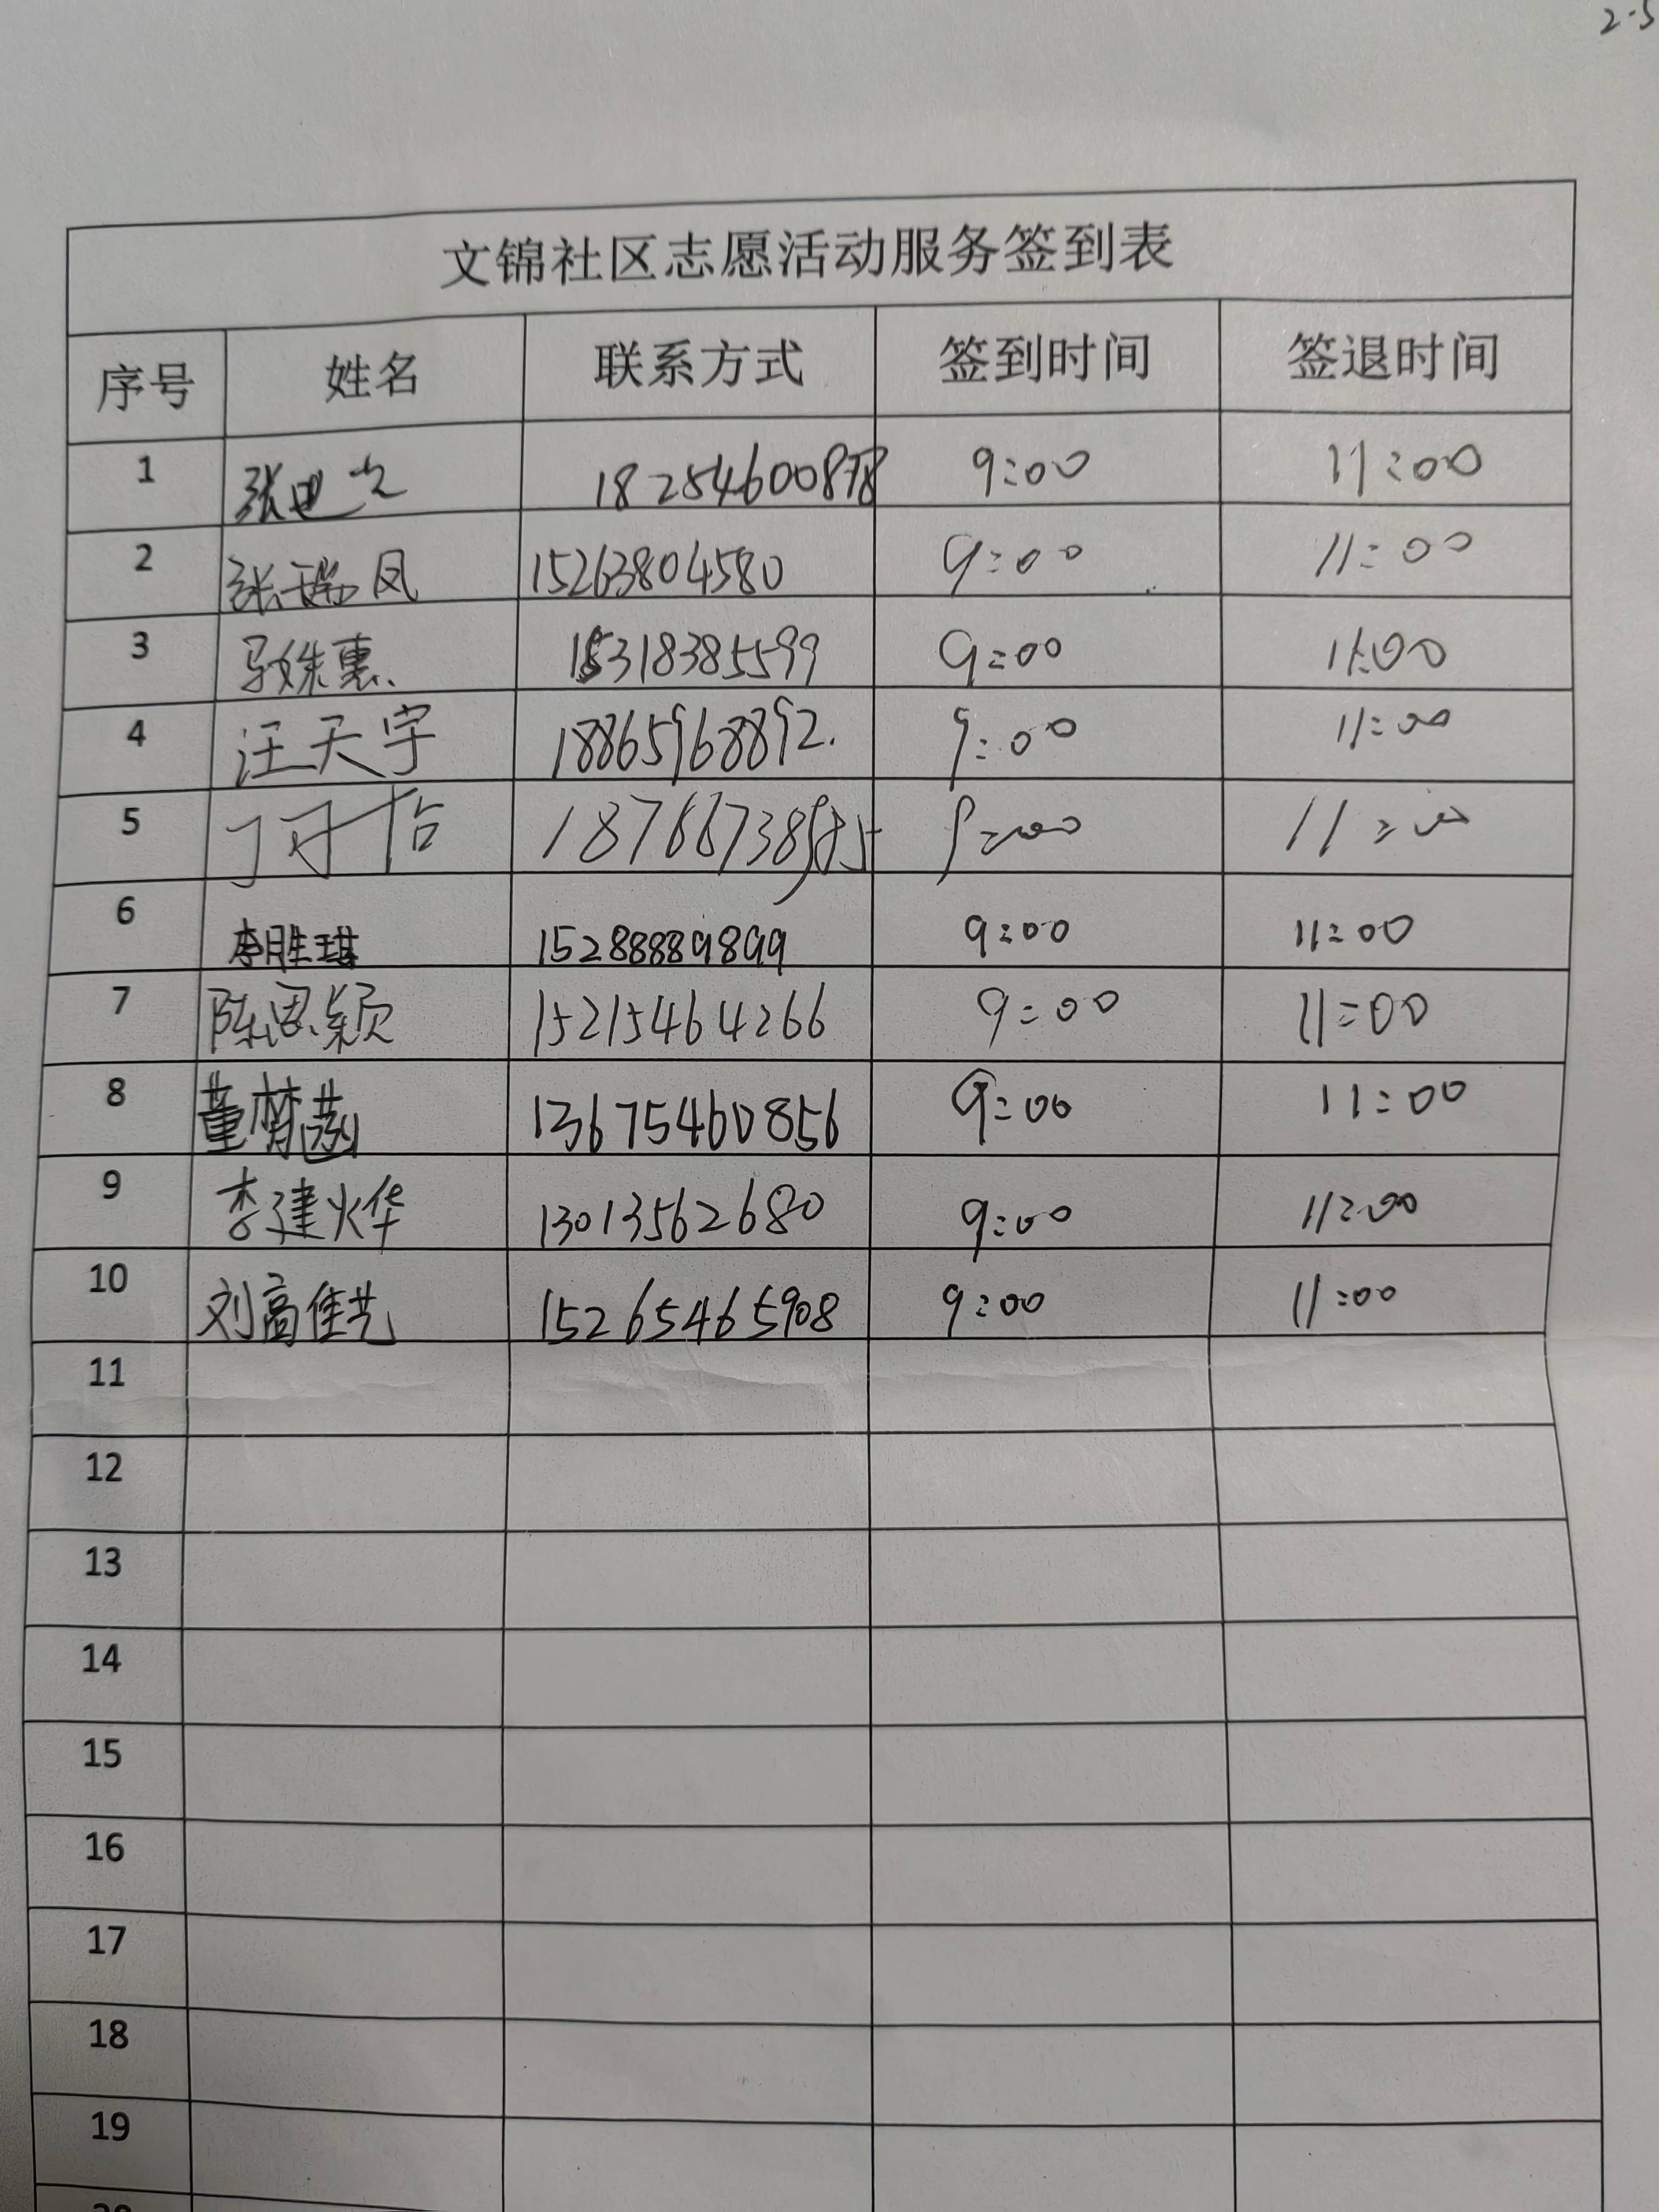 2.5
文锦社区志愿活动服务签到表
序号 姓名 联系方式 签到时间 签退时间
1 18254600878 9:00 11:00
2 张瑞凤 15263804580 9:00 11:00
3 马姝惠 15318385599 9:00 11:00
4 汪天宇 18865968892. 9:00 11:00
5 9:00 11:00
6 李胜琪 15288889899 9:00 11:00
7 陈思颖 15215464266 9:00 11:00
8 董梦 13675460856 9:00 11:00
9 李建烨 13013562680 9:00 11:00
10 刘高佳艺 15265465908 9:00 11:00
11
12
13
14
15
16
17
18
19
20